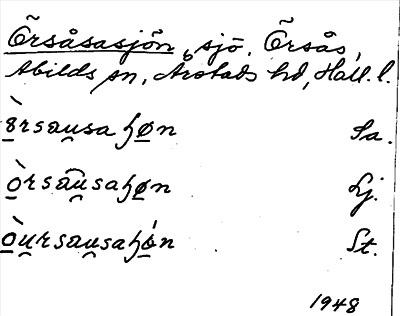 Õrsåsasjõn, sjö, Õrsås,
Abilds sn, Årstads hd, Hall. l.
ò̲rsau̯saɧø̲n Sa.
ò̲rsau̯saɧø̲n Lj.
ò̲u̯rsau̯saɧó̲n St.
1948